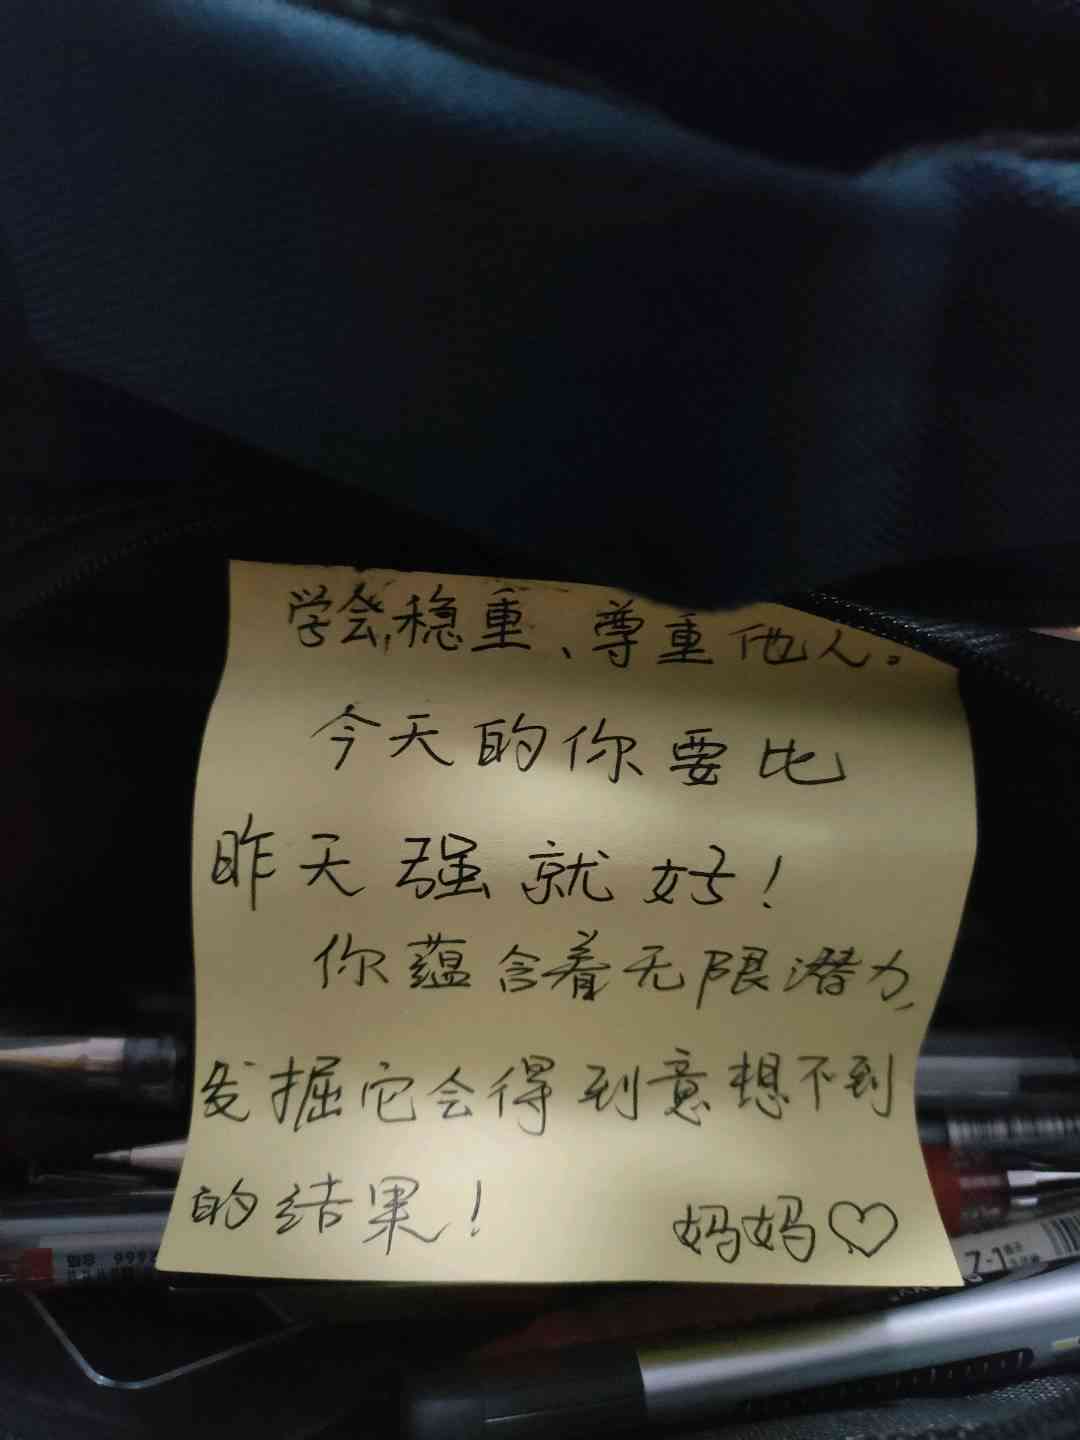 学会稳重、尊重他人。
今天的你要比
昨天强就好！
你蕴含着无限潜力,
发掘它会得到意想不到
的结果！
妈妈♡
9992
Z-1